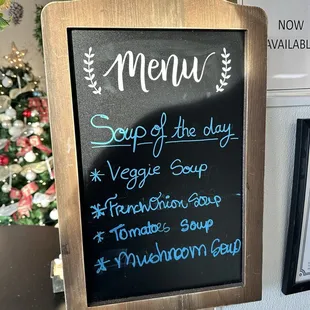 NOW
AVAILABLE
Menu
Soup of the day
* Veggie Soup
* French Onion Soup
* Tomatoes Soup
* Mushroom Soup